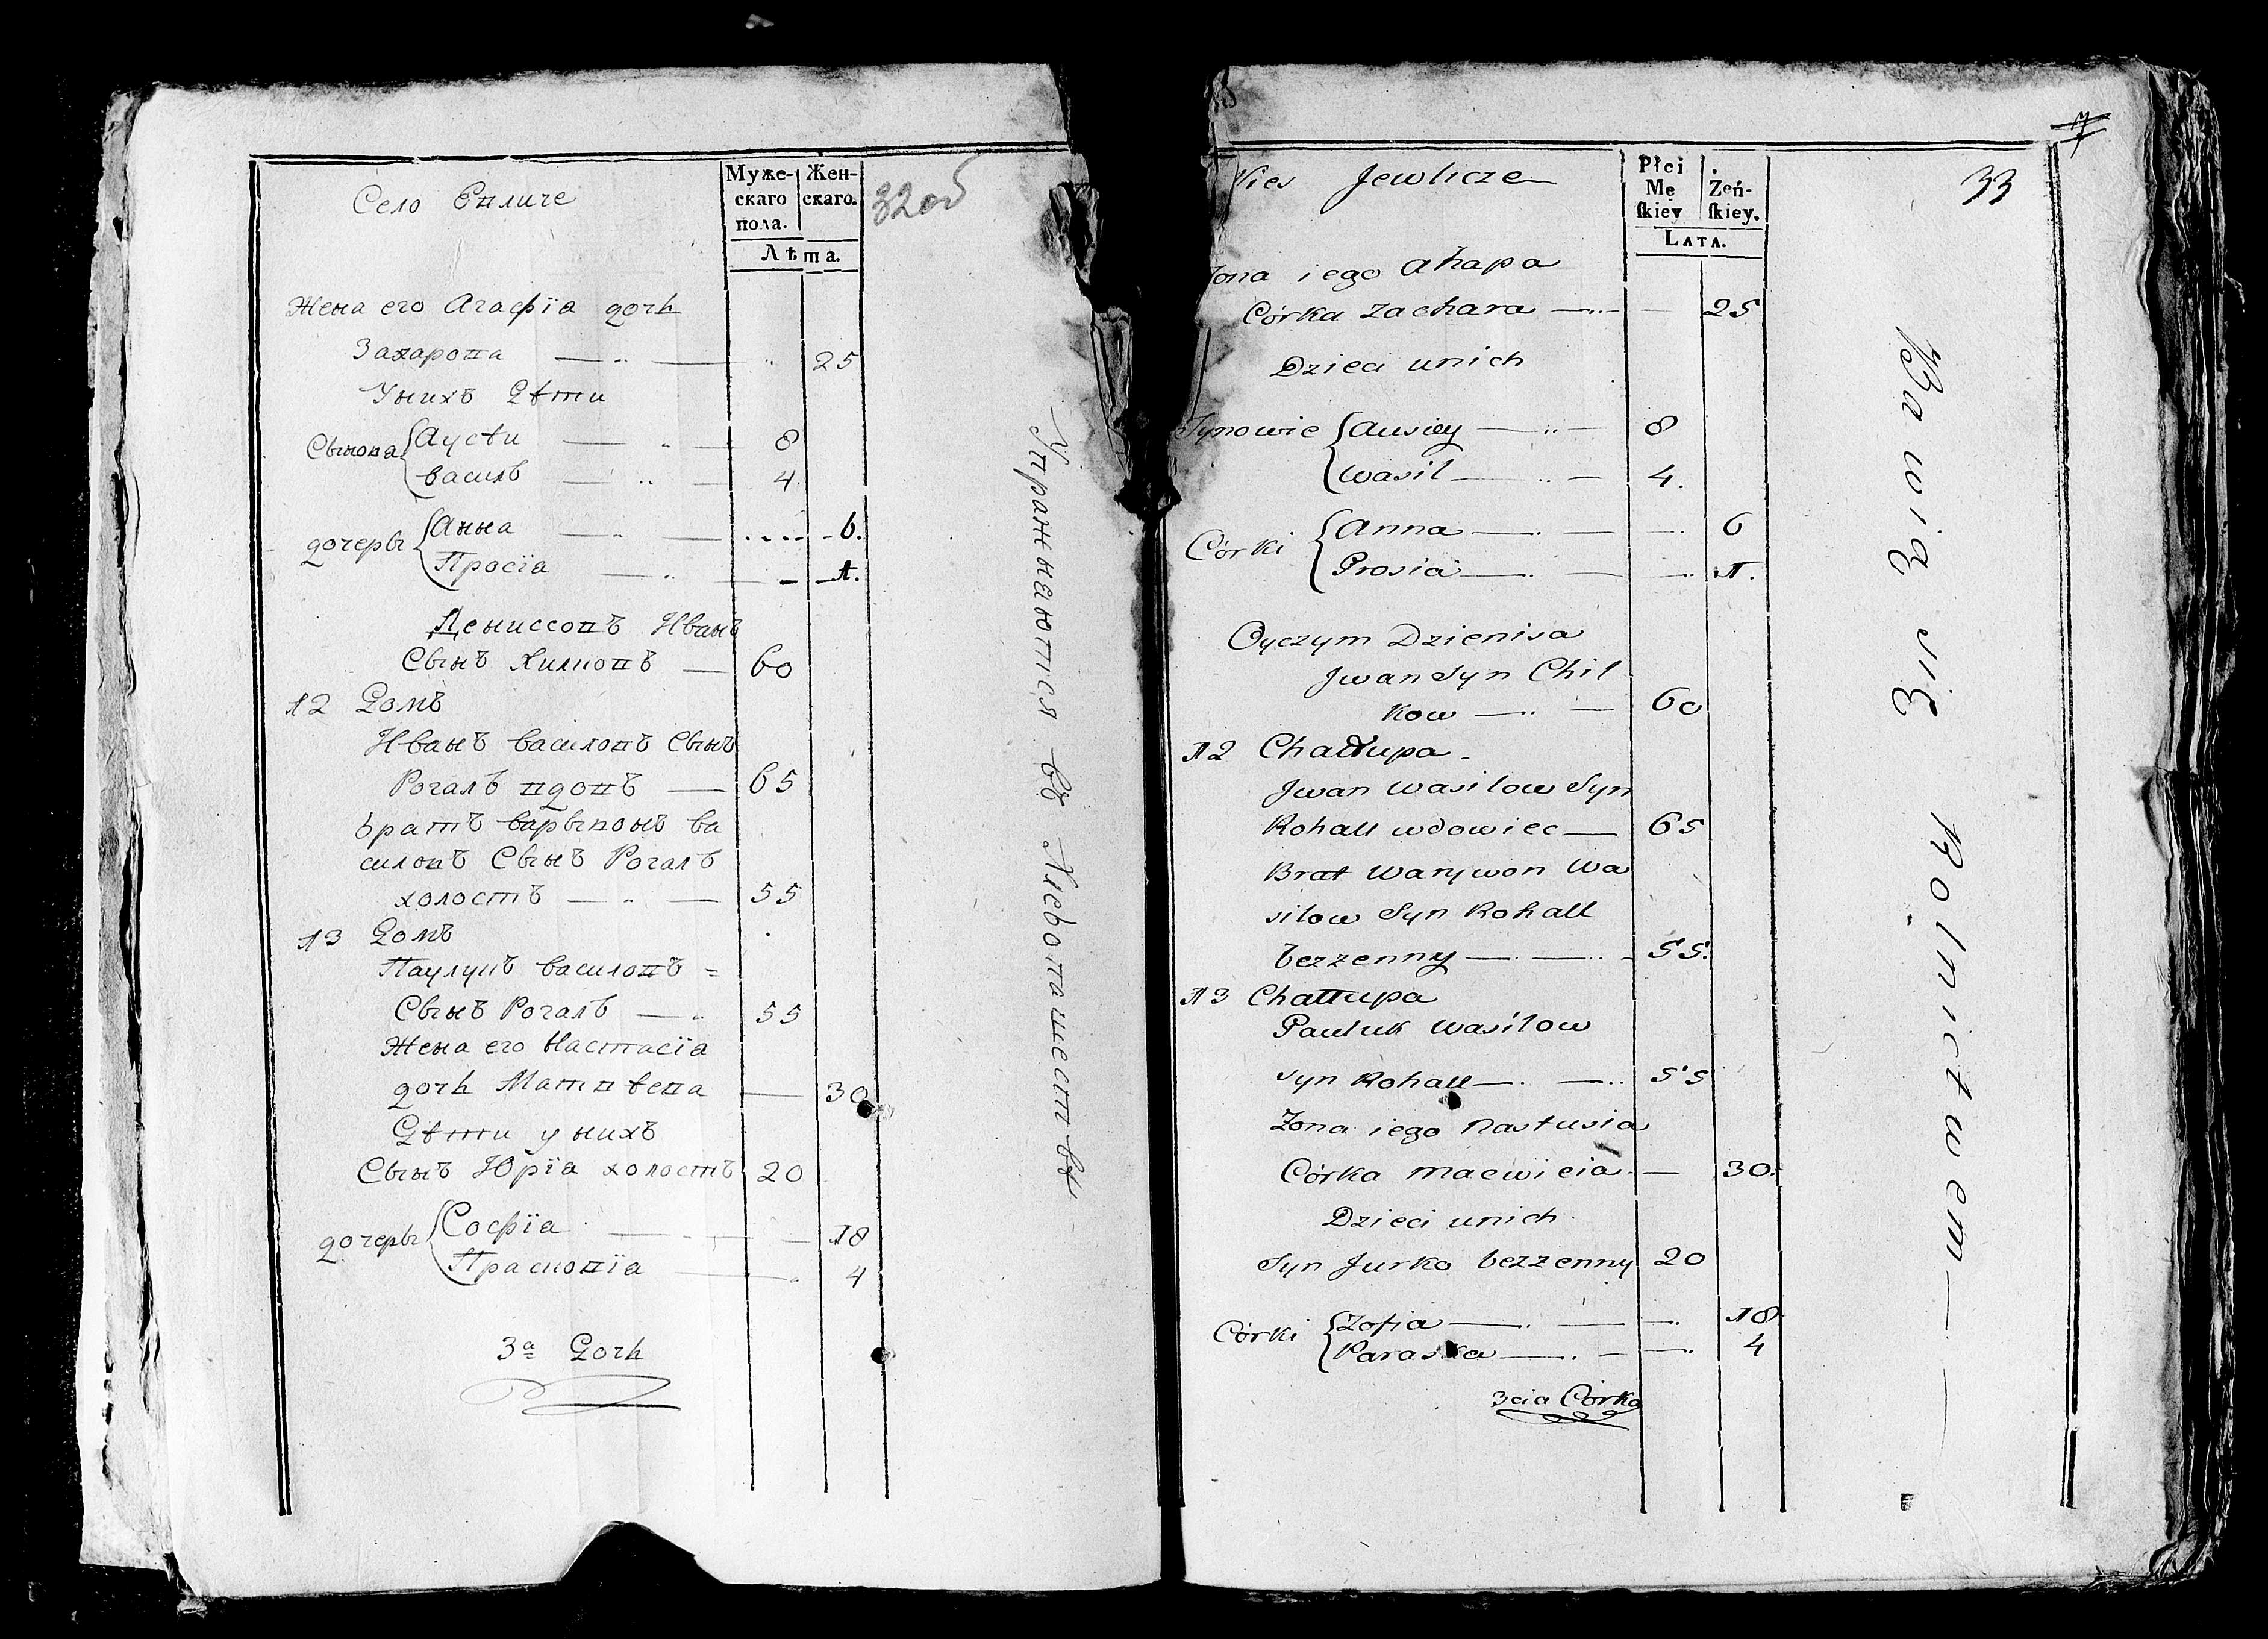 Село Евличе
Муже-
скаго
пола.
Жен-
скаго.
Лѣта.
32об
Жена его Агафїа дочь
Захарова — 25
У нихъ Дѣти
Сынова { Аусѣи — 8
Василь — 4
дочеры { Анна — 6.
Просїа — 1.
Дениссовъ Иванъ
Сынъ Хилковъ — 60
12 Домъ
Иванъ Василовъ Сынъ
Рогаль вдовъ — 65
братъ Варывонъ Ва
силовъ Сынъ Рогаль
холостъ — 55
13 Домъ
Паулукъ Василовъ =
Сынъ Рогаль — 55
Жена его Настасїа
дочь Матвѣева — 30
Дѣти у нихъ
Сынъ Юрїа холостъ 20
дочеры { Софїа — 18
Прасковїа — 4
3а Дочь
Упражнаются въ Хлебопашествѣ
Wies Jewlicze
Płci
Mę
skiey
Żeń-
skiey.
LATA.
33
Zona iego Ahapa
Córka Zachara — 25
Dzieci unich
Synowie { Ausiey — 8
Wasil — 4.
Córki { Anna — 6
Prosia — 1.
Oyczym Dzienisa
Jwan Syn Chil
kow — 60
12 Chałłupa
Jwan Wasilow Syn
Rohall wdowiec — 65
Brat Warywon Wa
silow Syn Rohall
bezzenny — 55.
13 Chałłupa
Pauluk Wasilow
Syn Rohall — 55
Zona iego Nastusia
Córka Macwieia — 30.
Dzieci unich
Syn Jurko bezzenny 20
Córki { Zofia — 18
Paraska — 4
3cia Córka
Bawią się Rolnictwem —